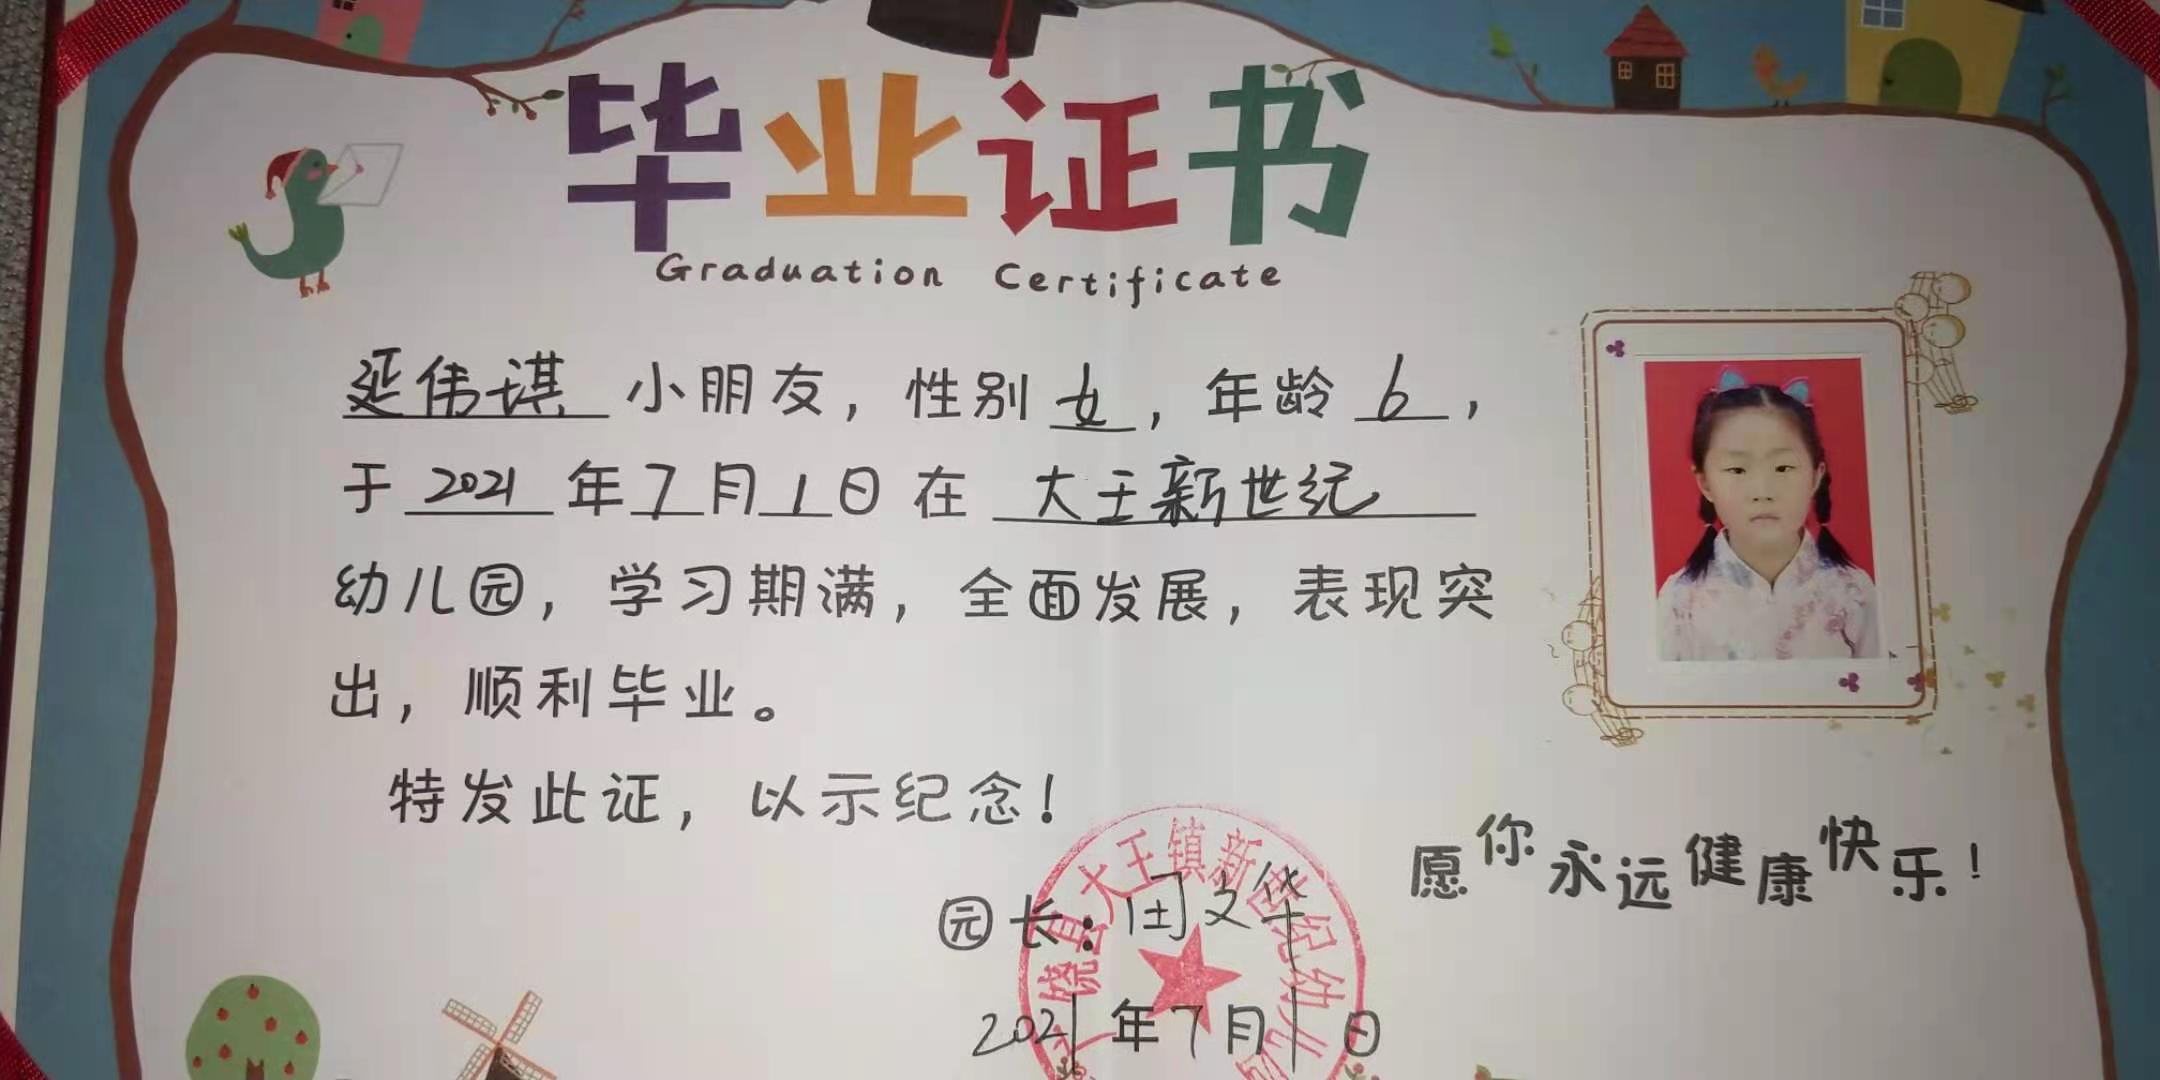 毕业证书
Graduation Certificate
延伟琪 小朋友，性别 女，年龄 6，
于 2021 年 7 月 1 日 在 大王新世纪
幼儿园，学习期满，全面发展，表现突
出，顺利毕业。
特发此证，以示纪念！
愿你永远健康快乐！
园长：闫文华
2021年7月1日
饶县大王镇新世纪幼儿园